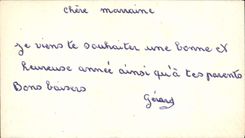 chère marraine
je viens te souhaiter une bonne et
heureuse année ainsi qu'à tes parents
Bons baisers
Gérard